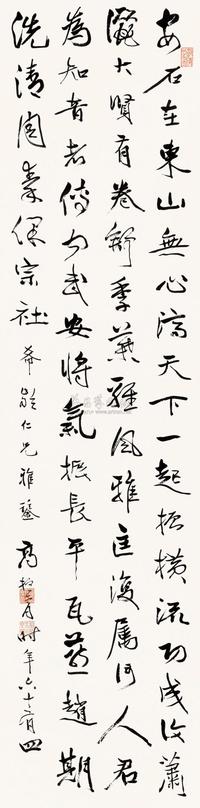 安石在東山無心濟天下一起振橫流功成復蕭
灑大賢有卷舒季葉輕風雅匡復屬何人君
為知音者傳聞武安將氣振長平瓦燕趙期
洗清周秦保宗社 希仁兄雅鑒 高振霄時年六十有四